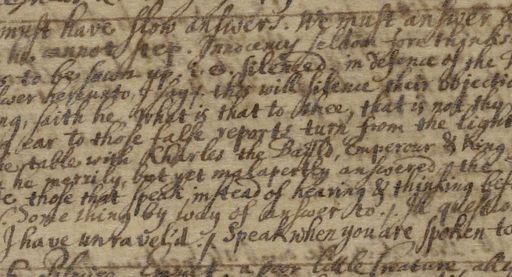 must have slow answers. We must answer
he cannot step. Innocency seldom fore thinks
s to be sown up. i.e. silenced, in defence of the
swer hereunto I say, this will silence their objectio
ng, saith he, What is that to thee, that is not thy
g ear to those false reports turn from the light
table with Charles the Bauld, Emperour & King
t he merrily, but yet malapertly answered, the
e those that speak, instead of hearing & thinking bef
Something by way of answer to
question
I have unravel'd. Speak when you are spoken to
a poor little creature